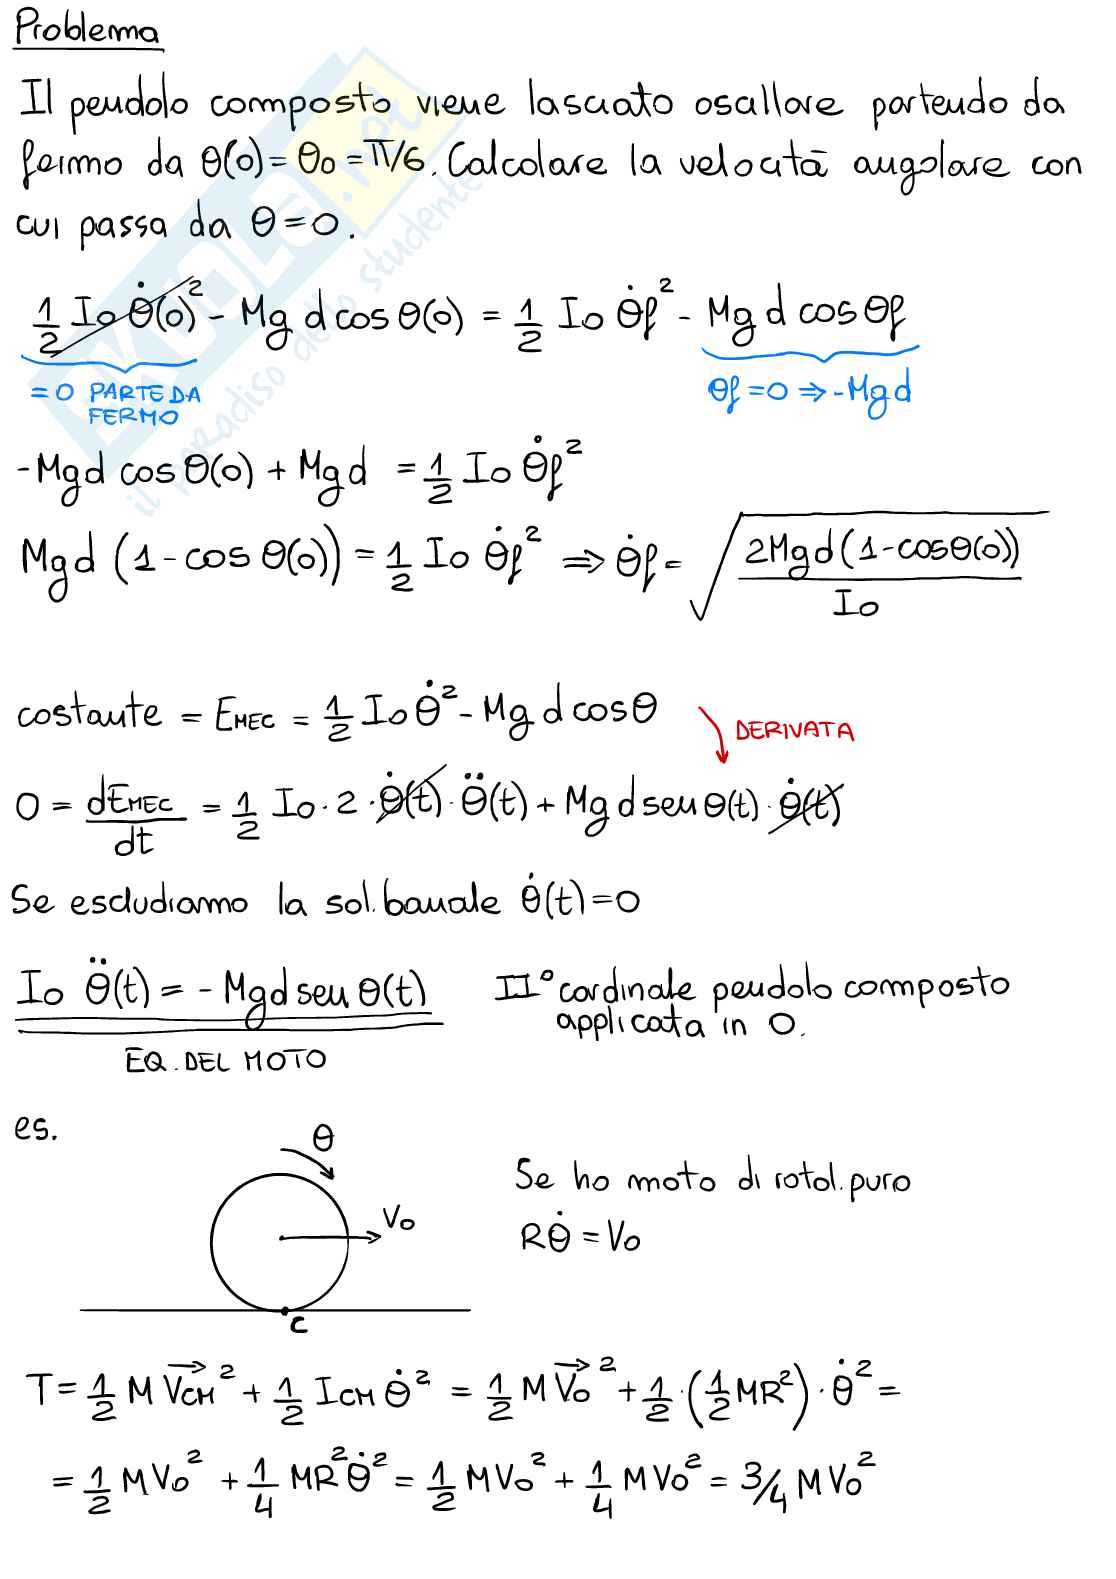 Problema
Il pendolo composto viene lasciato oscillare partendo da
fermo da θ(0)=θ₀=π/6. Calcolare la velocità angolare con
cui passa da θ=0.
1/2 I₀ θ̇(0)² - Mg d cos θ(0) = 1/2 I₀ θ̇f² - Mg d cos θf
= 0 PARTE DA
FERMO
θf = 0 ⇒ -Mgd
-Mgd cos θ(0) + Mgd = 1/2 I₀ θ̇f²
Mgd (1 - cos θ(0)) = 1/2 I₀ θ̇f² ⇒ θ̇f = √(2Mgd(1-cosθ(0))/I₀)
costante = EMEC = 1/2 I₀ θ̇² - Mg d cos θ
DERIVATA
0 = dEMEC/dt = 1/2 I₀ · 2 · θ̇(t) · θ̈(t) + Mg d sen θ(t) · θ̇(t)
Se escludiamo la sol. banale θ̇(t)=0
I₀ θ̈(t) = - Mgd sen θ(t) II° cardinale pendolo composto
applicata in O.
EQ. DEL MOTO
es.
θ
V₀
C
Se ho moto di rotol. puro
Rθ̇ = V₀
T = 1/2 M V⃗CM² + 1/2 ICM θ̇² = 1/2 M V⃗₀² + 1/2 · (1/2 MR²) · θ̇² =
= 1/2 MV₀² + 1/4 MR²θ̇² = 1/2 MV₀² + 1/4 MV₀² = 3/4 MV₀²
SKUOLA.net
il paradiso dello studente